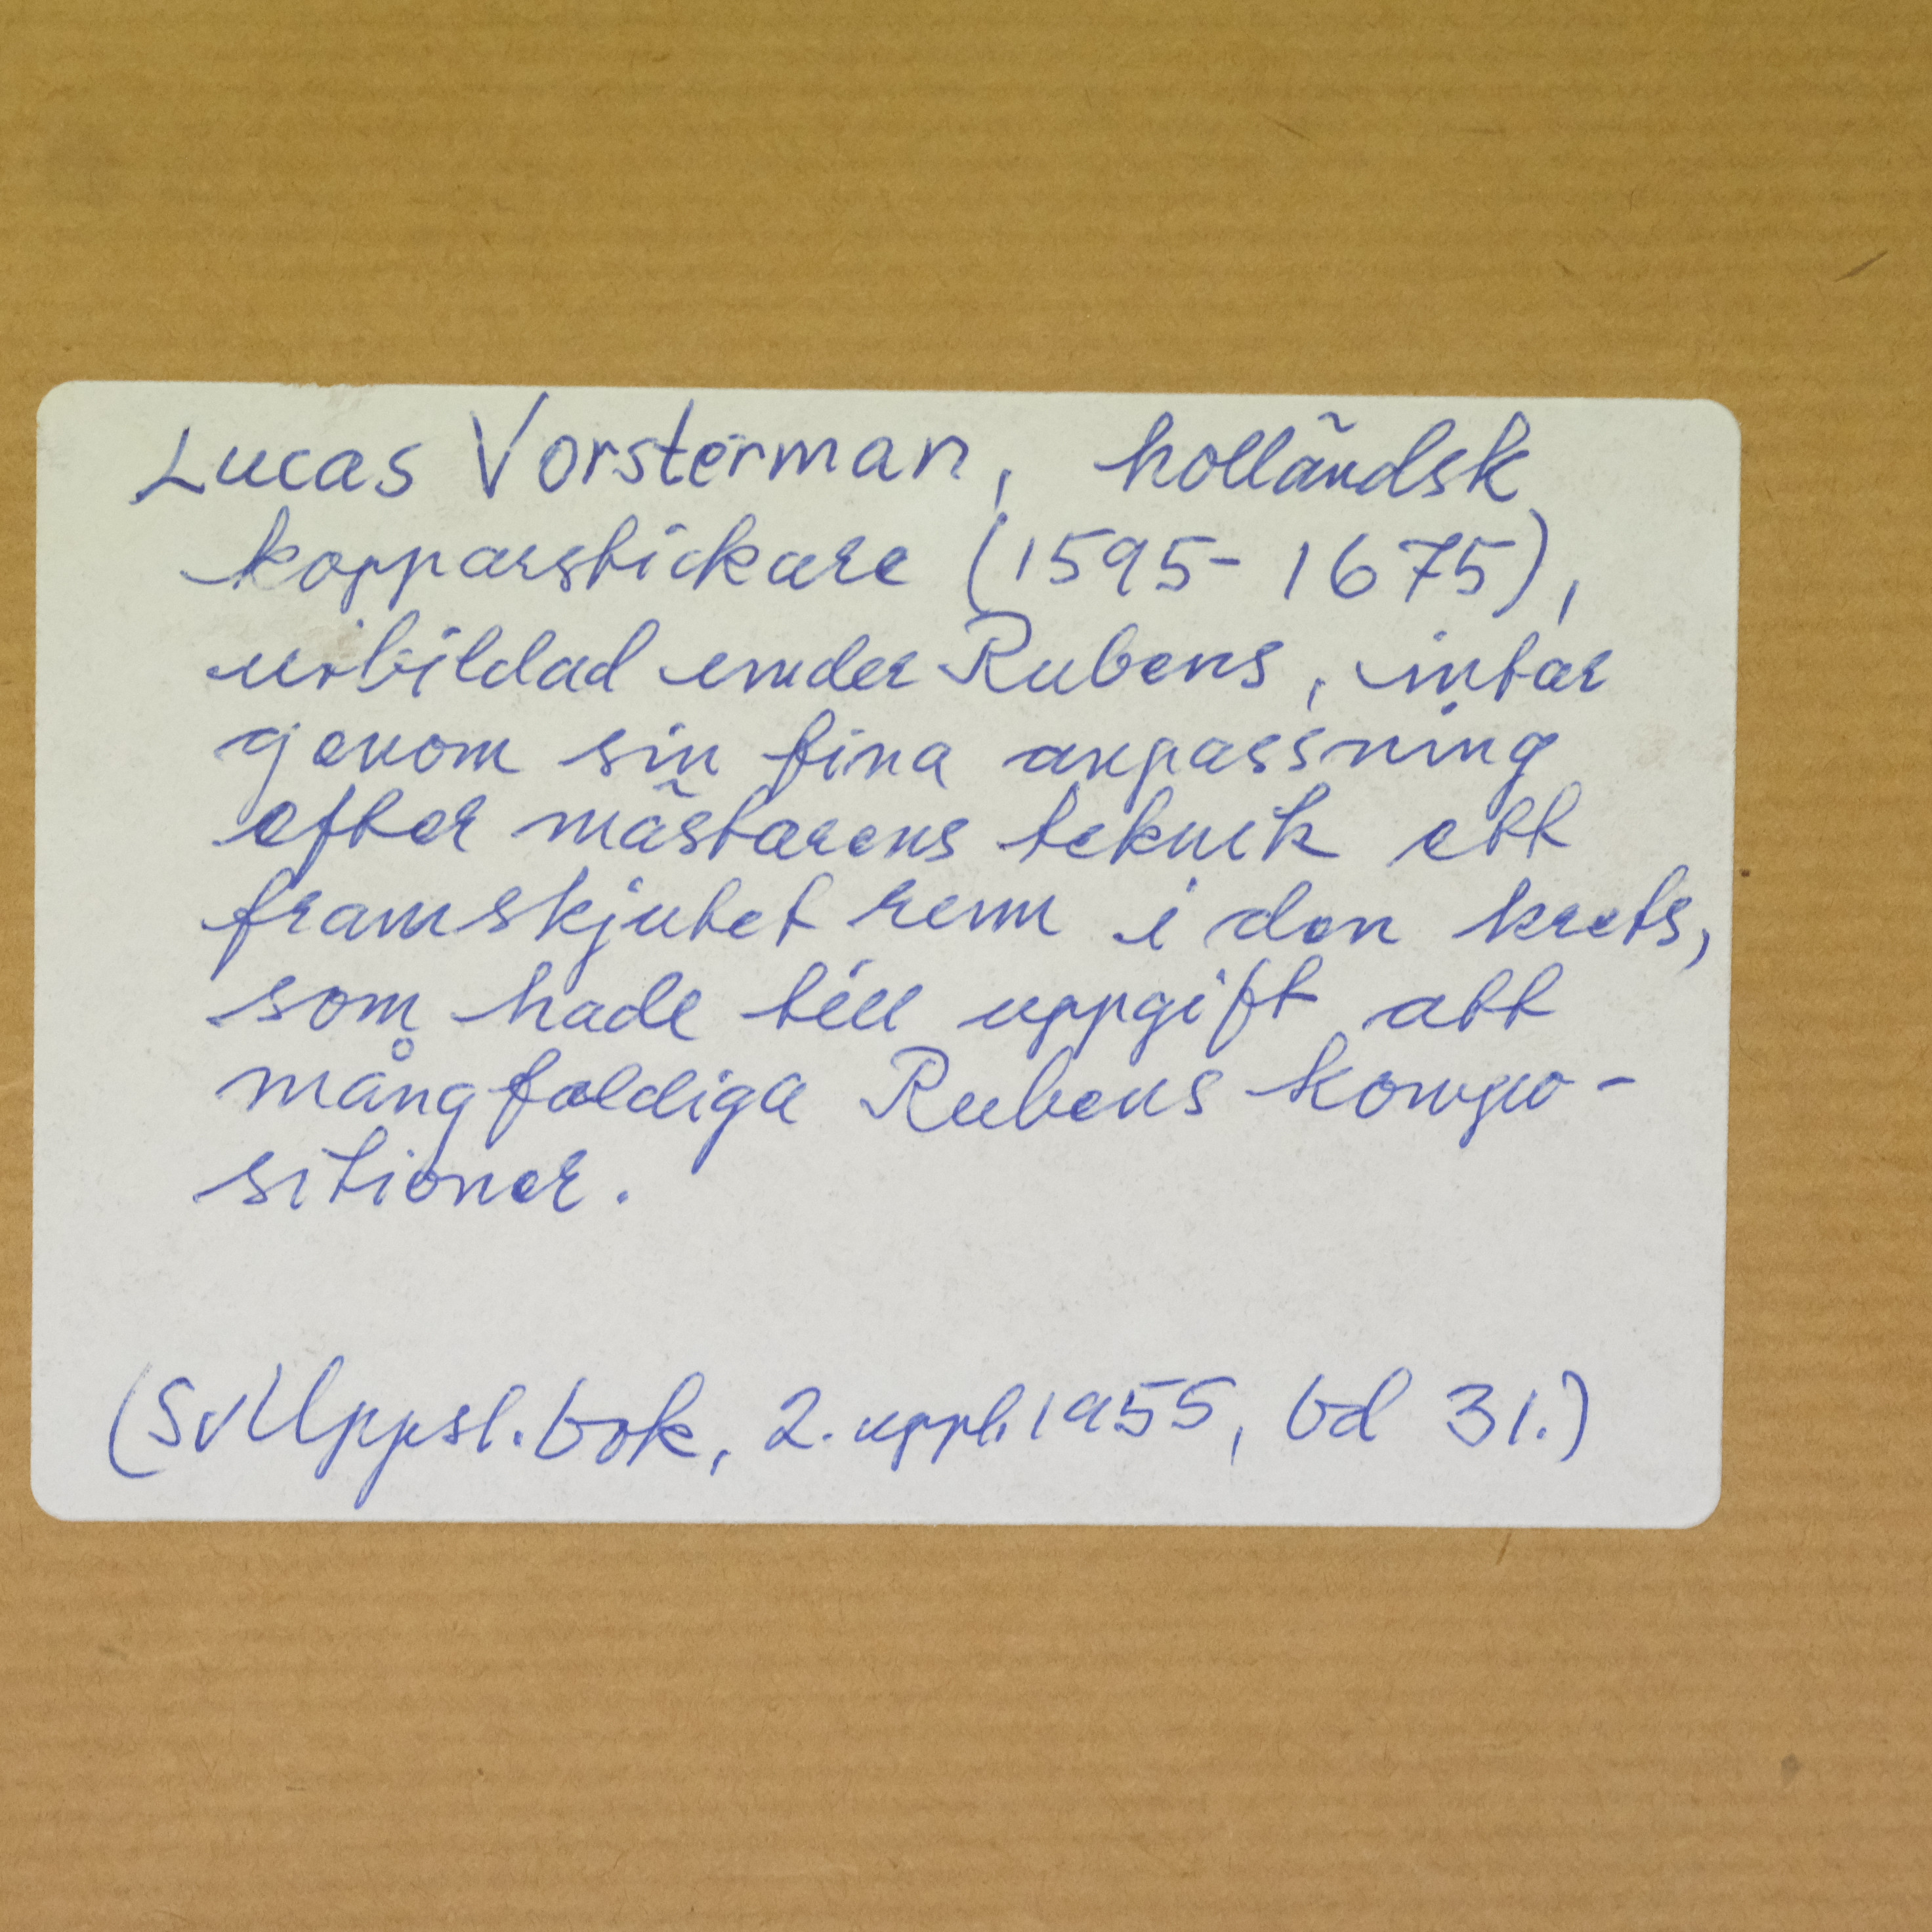 Lucas Vorsterman, holländsk
kopparstickare (1595-1675),
utbildad under Rubens, intar
genom sin fina anpassning
efter mästarens teknik ett
framskjutet rum i den krets,
som hade till uppgift att
mångfaldiga Rubens kompo-
sitioner.
(Sv Uppsl. bok, 2. uppl. 1955, bd 31.)